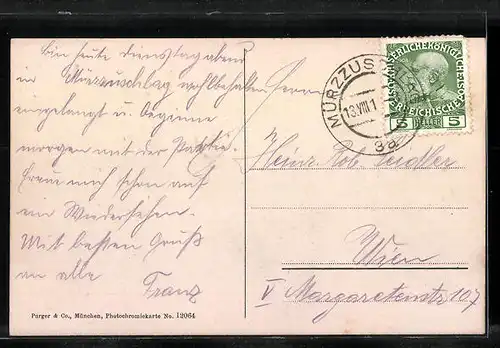 Bin heute Dienstag abend
in Mürzzuschlag wohlbehalten
eingelangt u. beginne
morgen mit der Partie.
Freue mich schon auf
ein Wiedersehen.
Mit besten Gruß
an alle
Franz
Herrn
Heinr. Rob.
Wien
V Margaretenstr 107
MÜRZZUSCHLAG
13.VIII.1
3a
KAISERLICHEKÖNIGLICHE
ÖSTERREICHISCHE POST
5 HELLER 5
Purger & Co., München, Photochromiekarte No. 12064